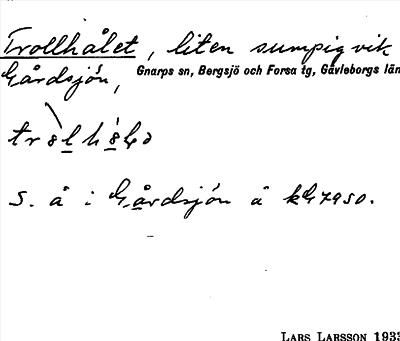 Trollhålet, liten sumpig vik
Gårdsjön, Gnarps sn, Bergsjö och Forsa tg, Gävleborgs län
S. å i Gårdsjön å kG7950.
LARS LARSSON 1933